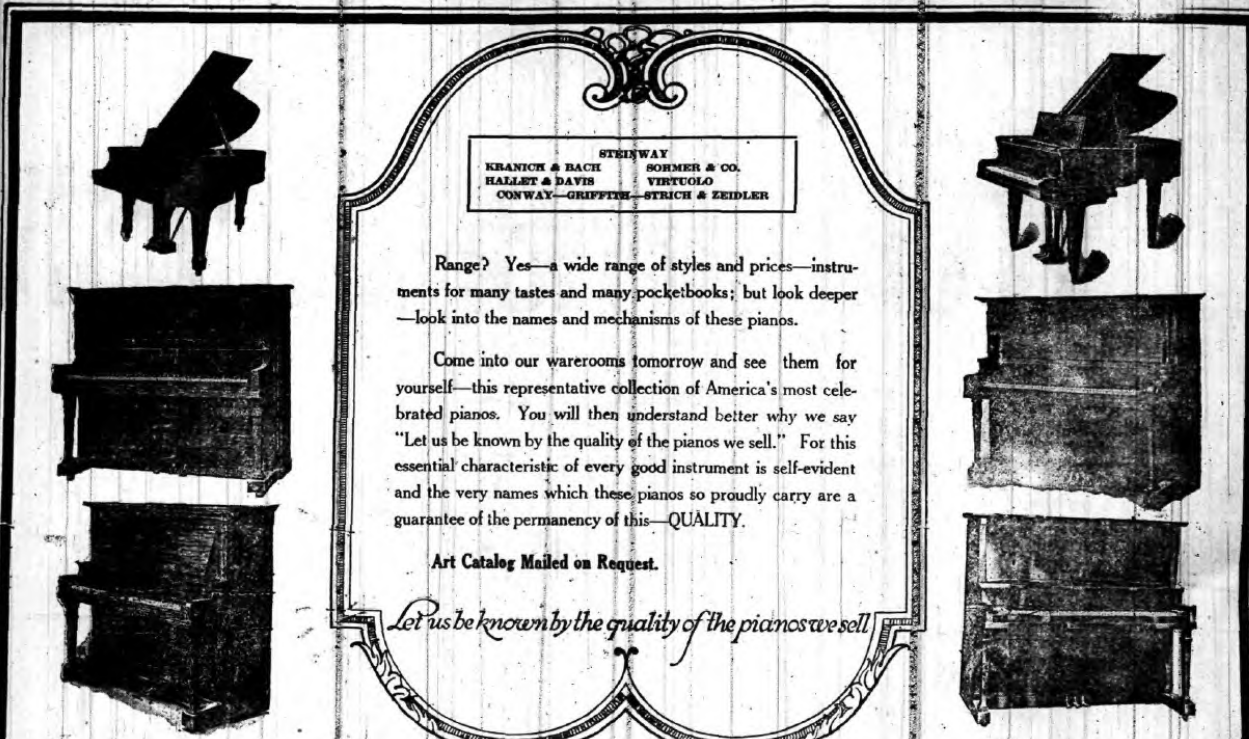 STEINWAY
KRANICH & BACH SOHMER & CO.
HALLET & DAVIS VIRTUOLO
CONWAY—GRIFFITH—STRICH & ZEIDLER
Range? Yes—a wide range of styles and prices—instru-
ments for many tastes and many pocketbooks; but look deeper
—look into the names and mechanisms of these pianos.
Come into our warerooms tomorrow and see them for
yourself—this representative collection of America's most cele-
brated pianos. You will then understand better why we say
"Let us be known by the quality of the pianos we sell." For this
essential characteristic of every good instrument is self-evident
and the very names which these pianos so proudly carry are a
guarantee of the permanency of this—QUALITY.
Art Catalog Mailed on Request.
Let us be known by the quality of the pianos we sell